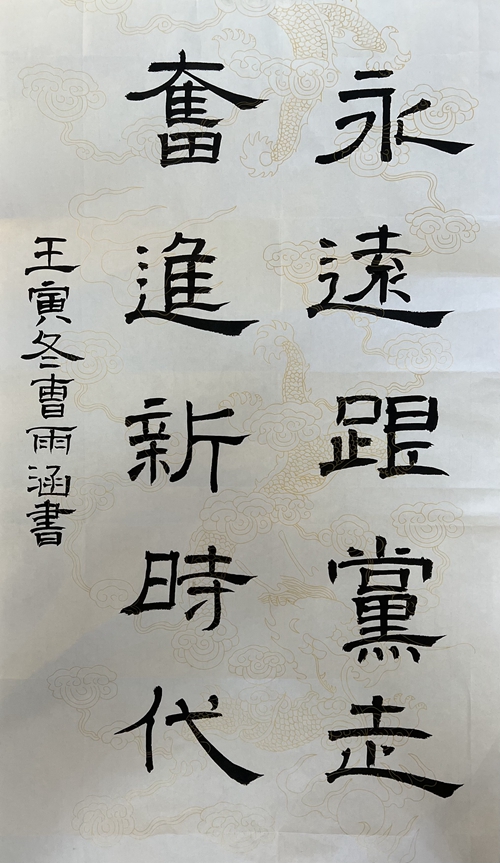 永遠跟黨走
奮進新時代
王寅冬曹雨涵書